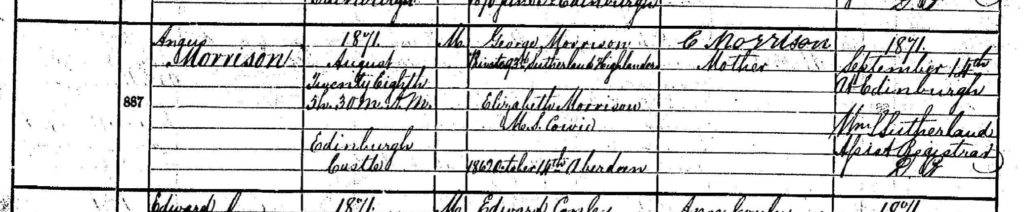 Edinburgh
Edinburgh
887
Angus
Morrison
1871
August
Twenty Eighth
3h. 30m. A.M.
Edinburgh
Castle
M.
George Morrison
Private 93d Sutherland Highlanders
Elizabeth Morrison
M.S. Cowie
1862 October 14th Aberdeen
C Morrison
Mother
1871
September 14th
At Edinburgh
Wm Sutherland
Assist Registrar
Edward
1871
M
Edward
1871